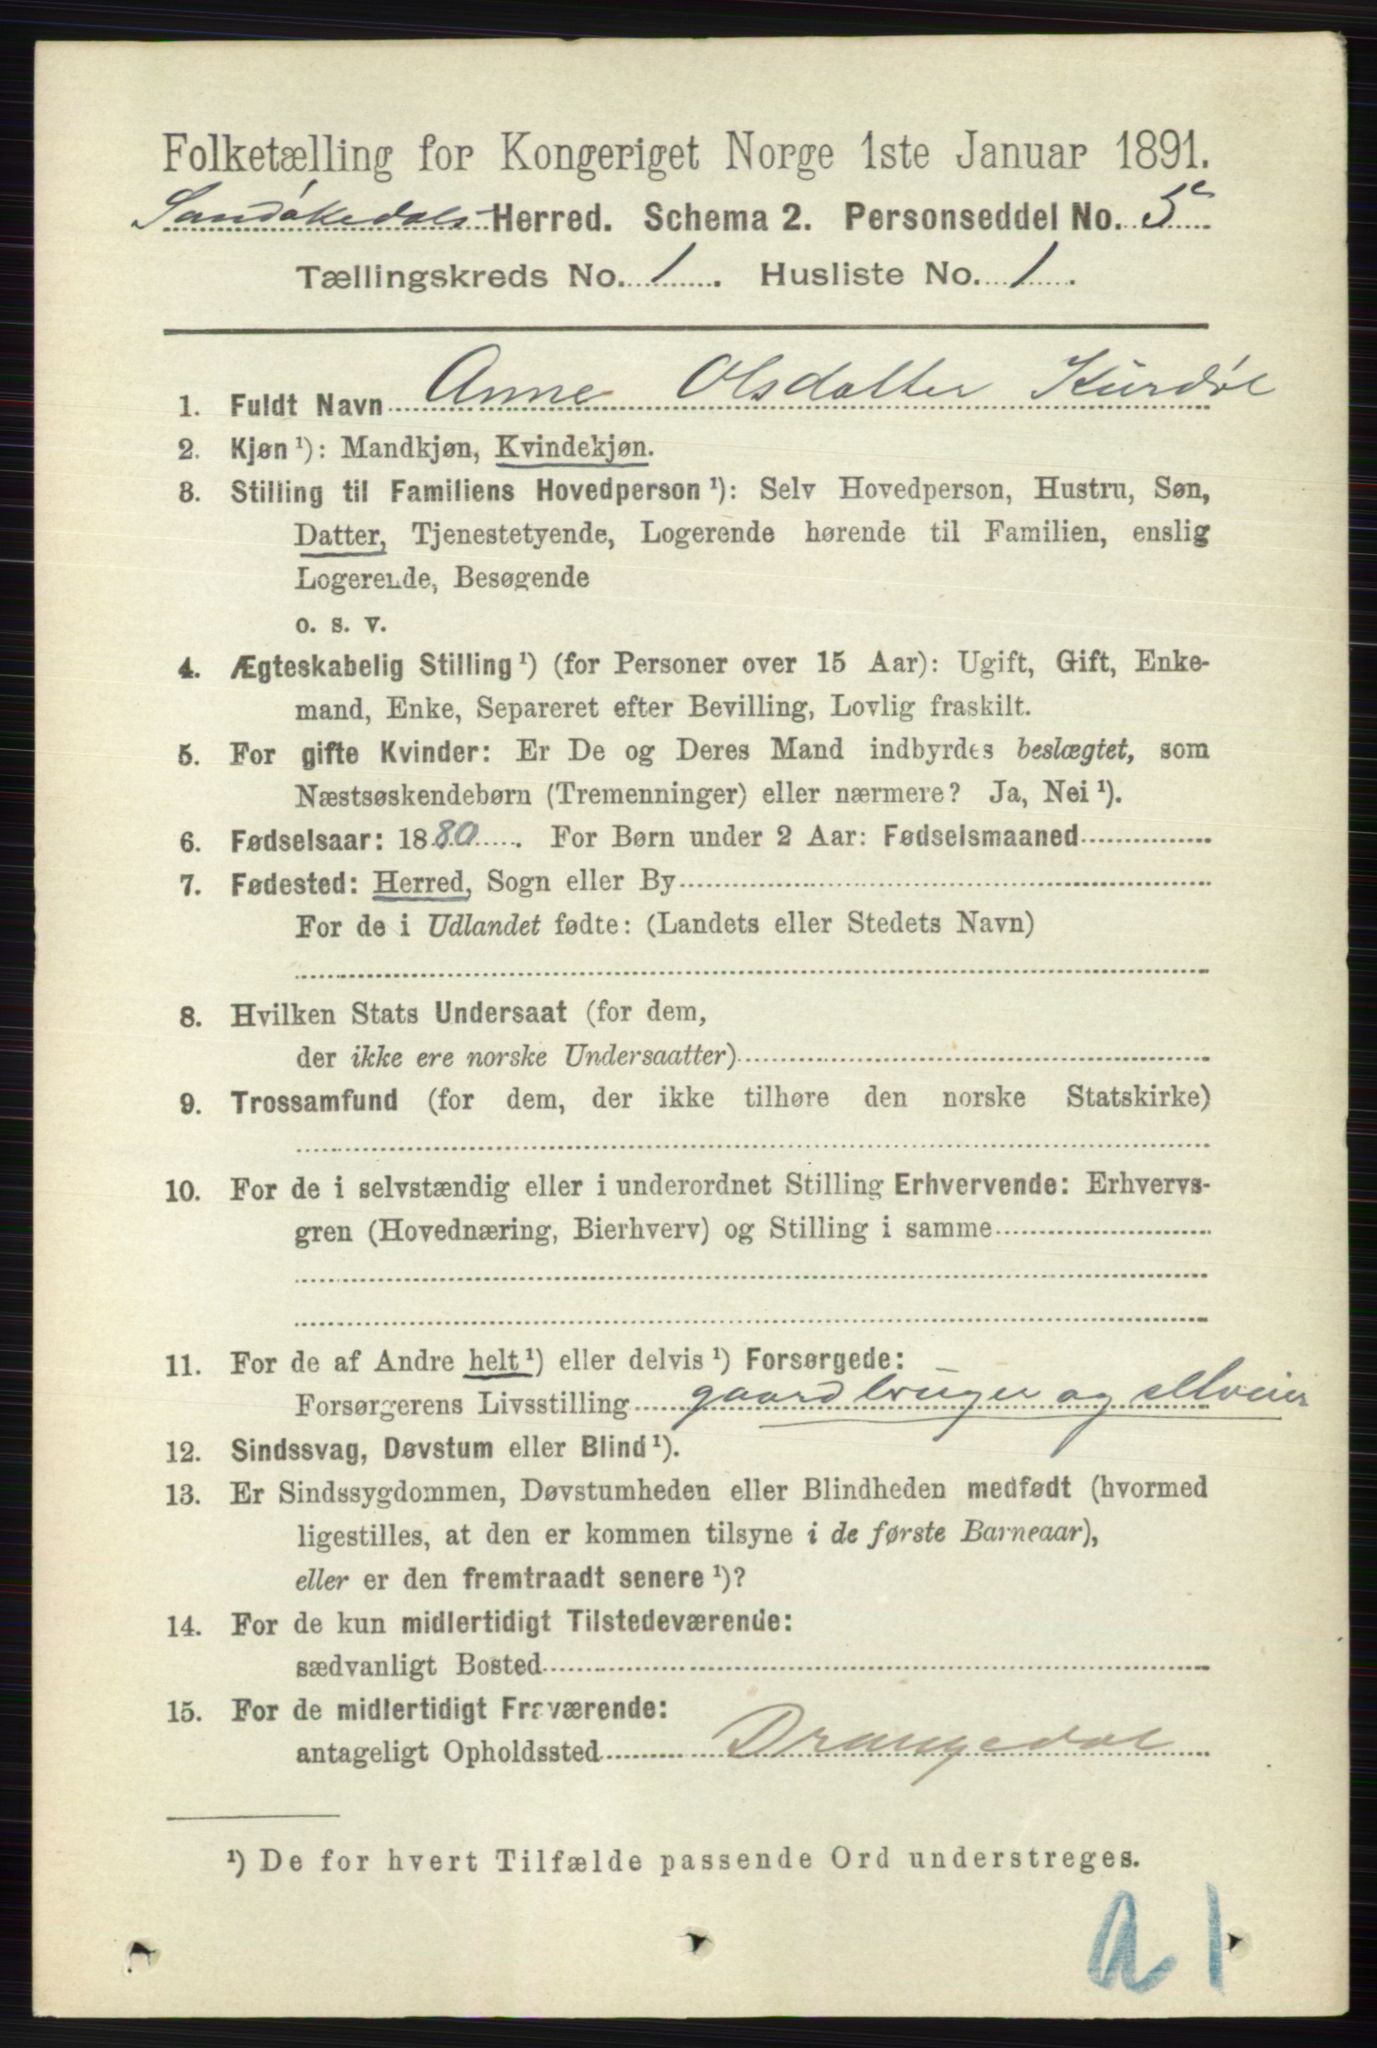 Folketælling for Kongeriget Norge 1ste Januar 1891.
Sandøkedals Herred. Schema 2. Personseddel No. 5
Tællingskreds No. 1. Husliste No. 1.
1. Fuldt Navn Anne Olsdatter Kurdøl
2. Kjøn¹): Mandkjøn, Kvindekjøn.
3. Stilling til Familiens Hovedperson¹): Selv Hovedperson, Hustru, Søn,
Datter, Tjenestetyende, Logerende hørende til Familien, enslig
Logerende, Besøgende
o. s. v.
4. Ægteskabelig Stilling¹) (for Personer over 15 Aar): Ugift, Gift, Enke-
mand, Enke, Separeret efter Bevilling, Lovlig fraskilt.
5. For gifte Kvinder: Er De og Deres Mand indbyrdes beslægtet, som
Næstsøskendebørn (Tremenninger) eller nærmere? Ja, Nei¹).
6. Fødselsaar: 1880. For Børn under 2 Aar: Fødselsmaaned
7. Fødested: Herred, Sogn eller By
For de i Udlandet fødte: (Landets eller Stedets Navn)
8. Hvilken Stats Undersaat (for dem,
der ikke ere norske Undersaatter)
9. Trossamfund (for dem, der ikke tilhøre den norske Statskirke)
10. For de i selvstændig eller i underordnet Stilling Erhvervende: Erhvervs-
gren (Hovednæring, Bierhverv) og Stilling i samme
11. For de af Andre helt¹) eller delvis¹) Forsørgede:
Forsørgerens Livsstilling gaardbruger og selveier
12. Sindssvag, Døvstum eller Blind¹).
13. Er Sindssygdommen, Døvstumheden eller Blindheden medfødt (hvormed
ligestilles, at den er kommen tilsyne i de første Barneaar),
eller er den fremtraadt senere¹)?
14. For de kun midlertidigt Tilstedeværende:
sædvanligt Bosted
15. For de midlertidigt Fraværende:
antageligt Opholdssted Drangedal
¹) De for hvert Tilfælde passende Ord understreges.
a 1